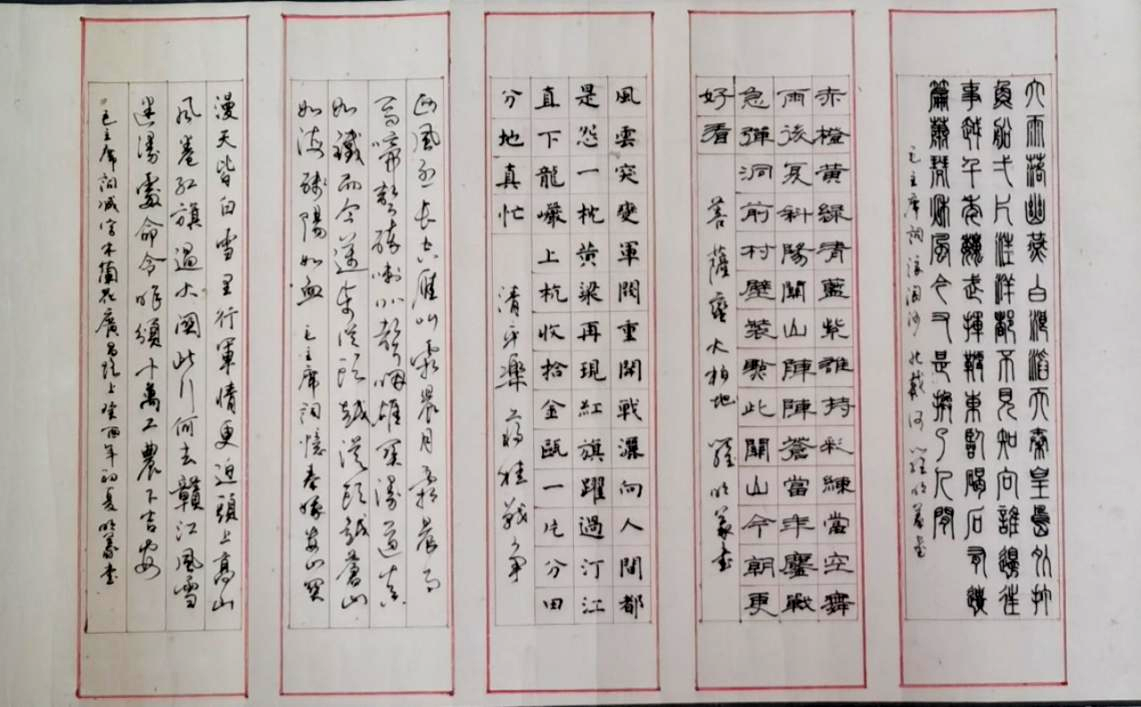 大雨落幽燕白浪滔天秦皇島外打
魚船一片汪洋都不見知向誰邊往
事越千年魏武揮鞭東臨碣石有遺
篇蕭瑟秋風今又是換了人間
毛主席詞浪淘沙 北戴河 羅明義書
赤橙黃綠青藍紫誰持彩練當空舞
雨後复斜陽關山陣陣蒼當年鏖戰
急彈洞前村壁裝點此關山今朝更
好看 菩薩蠻大柏地 羅明義書
風雲突變軍閥重開戰灑向人間都
是怨一枕黃粱再現紅旗躍過汀江
直下龍巖上杭收拾金甌一片分田
分地真忙 清平樂 蔣桂戰爭
西風烈長空雁叫霜晨月霜晨月
馬蹄聲碎喇叭聲咽雄關漫道真
如鐵而今邁步從頭越從頭越蒼山
如海殘陽如血 毛主席詞憶秦娥婁山關
漫天皆白雪里行軍情更迫頭上高山
風卷紅旗過大關此行何去贛江風雪
迷漫處命令昨頒十萬工農下吉安
毛主席詞減字木蘭花廣昌路上 年初夏明義書